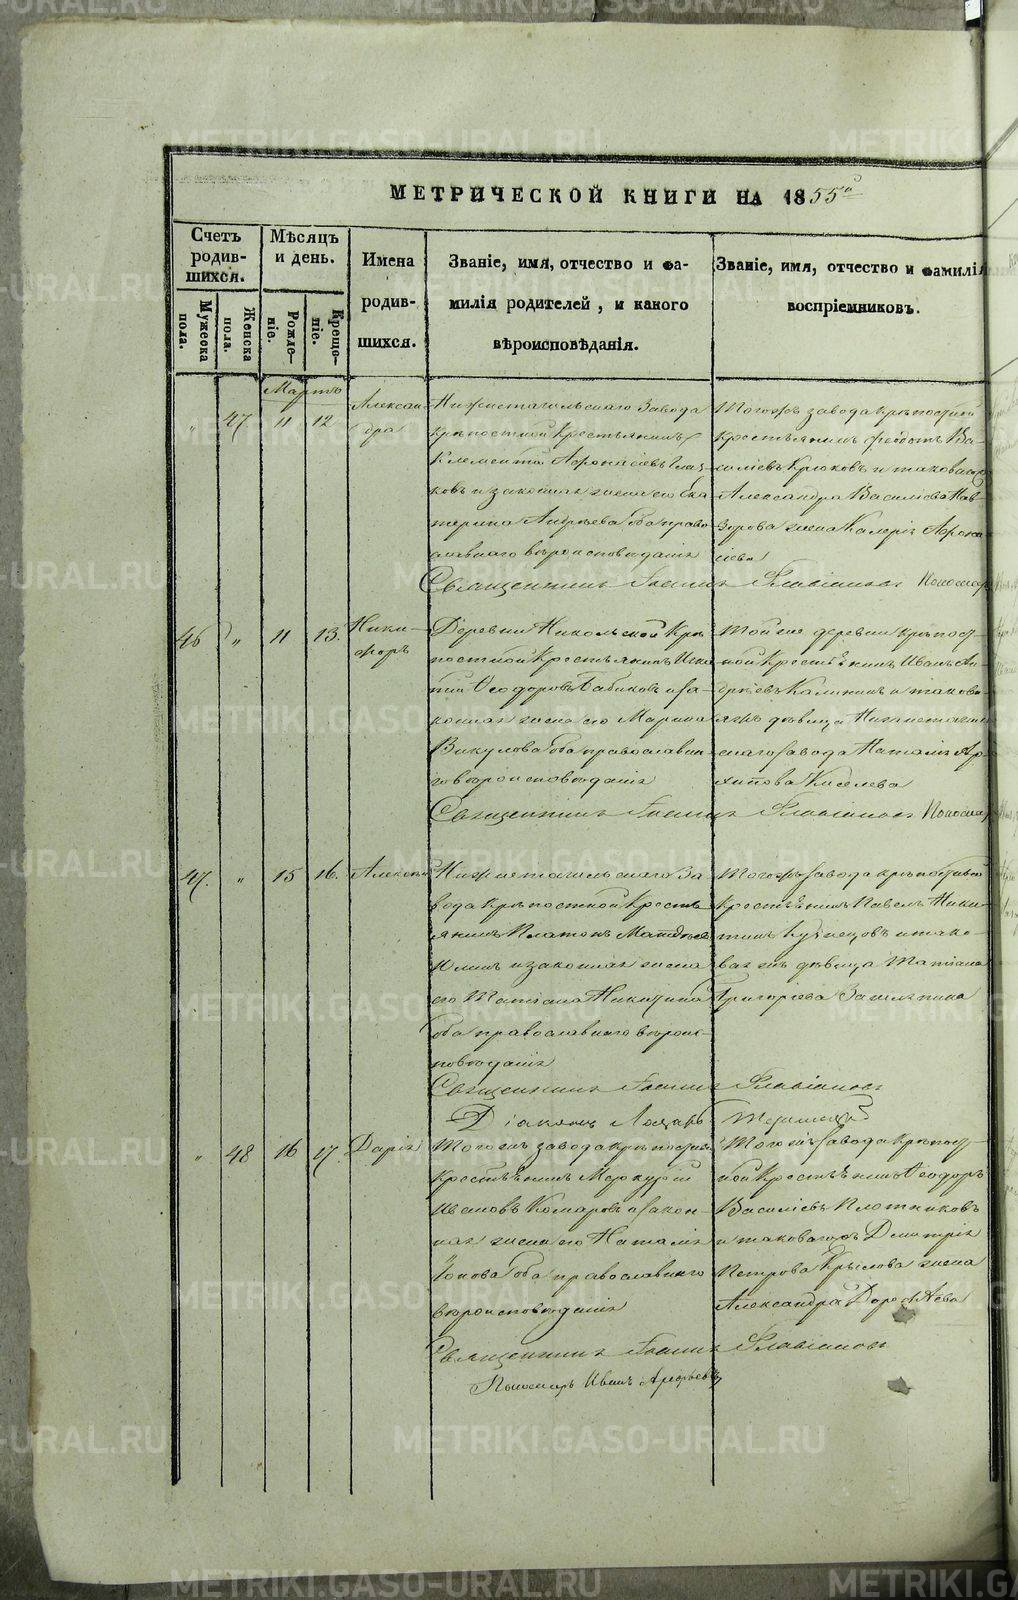 МЕТРИЧЕСКОЙ КНИГИ НА 1855
Счетъ родившихся.
Мѣсяцъ и день.
Имена родившихся.
Званіе, имя, отчество и фамилія родителей, и какого вѣроисповѣданія.
Званіе, имя, отчество и фамилія воспріемниковъ.
Мужеска пола.
Женска пола.
Рожденіе.
Крещеніе.
Мартъ
„ 47 11 12
Алексан
дра
Нижнетагильскаго Завода
крѣпостной Крестьянинъ
Климентій Афонасіевъ
ковъ и законная жена его Ека
терина Андреева оба право
славнаго вѣроисповѣданія
Тогожъ завода крѣпостной
крестьянинъ Феодотъ Ва-
силіевъ Крюковъ и таковагожъ
Александра Василіева
жена Валерія Афона
сіева
Священникъ Іоаннъ Флавіановъ Пономарь
46 „ 11 13.
Ники-
форъ
Деревни Никольской Крѣ
постной Крестьянинъ
Феодоровъ Бабиковъ и за-
конная жена его Марина
Викулова оба православна
го вѣроисповѣданія
Той же деревни крѣпост-
ной Крестьянинъ Иванъ Ан-
дреевъ Калининъ и таково-
яжъ дѣвица Нижнетагиль
скаго завода Наталія Ар
хипова Киселева
Священникъ Іоаннъ Флавіановъ Пономарь
47. „ 15 16.
Алексѣй
Нижнетагильскаго За
вода крѣпостной Кресть
янинъ Платонъ Матвѣевъ
Юдинъ и законная жена
его Татіана Никитина
оба православнаго вѣроис-
повѣданія
Тогожъ завода крѣпостной
крестьянинъ Павелъ Ники-
тинъ Кузнецовъ и тако-
ваяжъ дѣвица Татіана
Григоріева
Священникъ Іоаннъ Флавіановъ
Діаконъ Лазарь
„ 48 16 17.
Дарія
Тогожъ завода крѣпостной
крестьянинъ Меркурій
Ивановъ Комаровъ и закон-
ная жена его Наталія
Іонова оба православнаго
вѣроисповѣданія
Тогожъ завода крѣпост-
ной Крестьянинъ Феодоръ
Василіевъ Плотниковъ
и таковагожъ Димитрія
Петрова Крылова жена
Александра Дорофѣева
Священникъ Іоаннъ Флавіановъ
Пономарь Иванъ Арефьевъ
METRIKI.GASO-URAL.RU